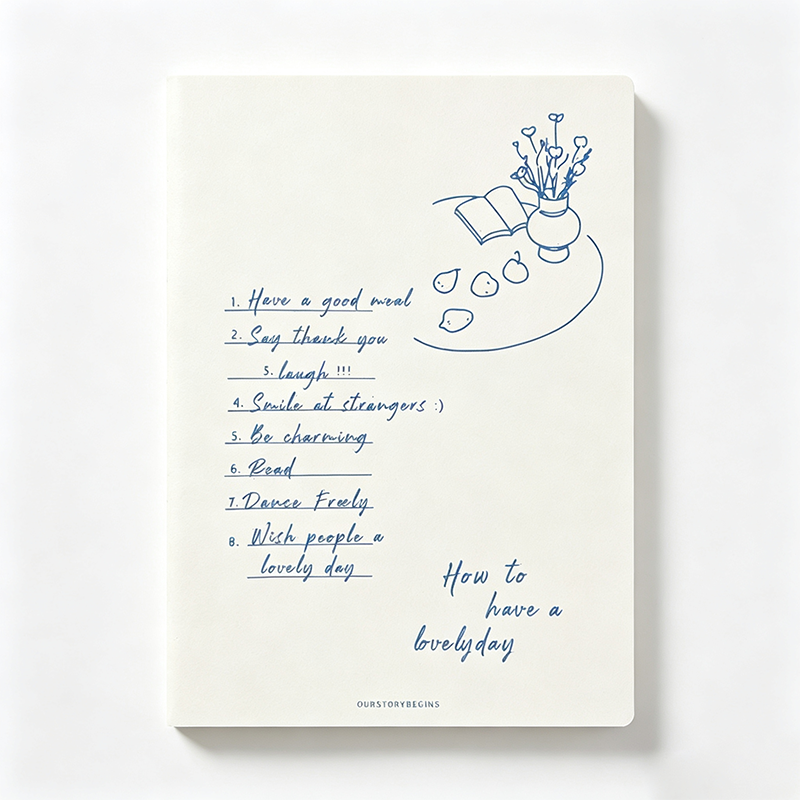 1. Have a good meal
2. Say thank you
5. laugh !!!
4. Smile at strangers :)
5. Be charming
6. Read
7. Dance Freely
8. Wish people a
lovely day
How to
have a
lovelyday
OURSTORYBEGINS